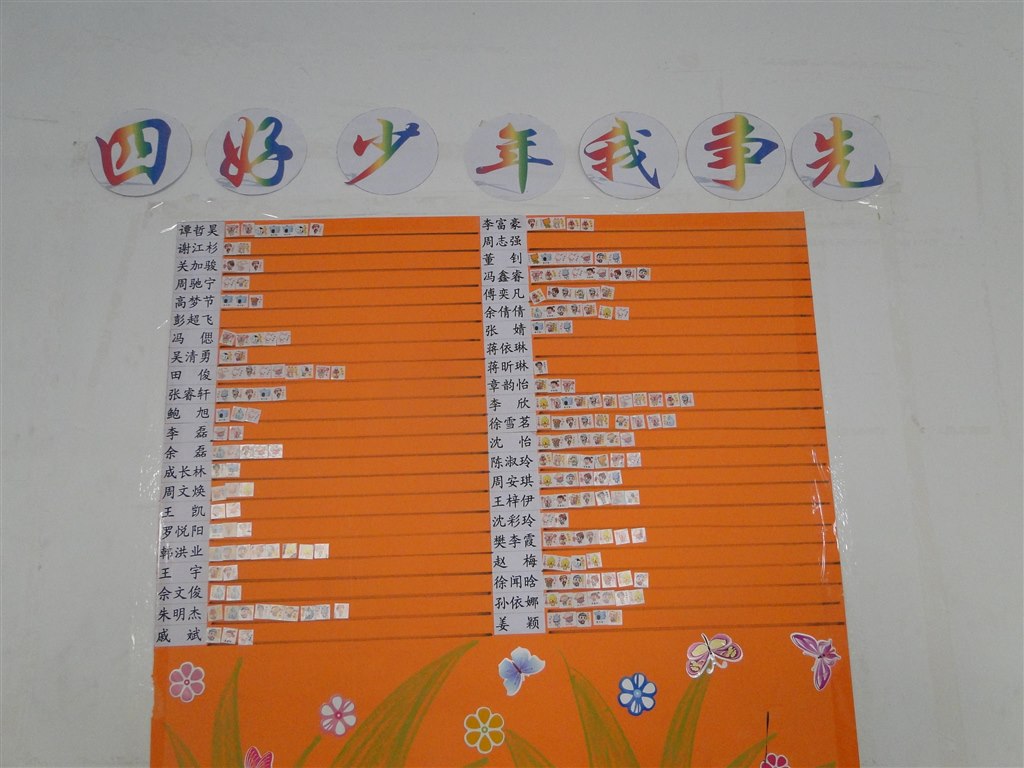 四好少年我争先
谭哲昊
谢江杉
关加骏
周驰宁
高梦节
彭超飞
冯偲
吴清勇
田俊
张睿轩
鲍旭
李磊
余磊
成长林
周文焕
王凯
罗悦阳
郭洪业
王宇
余文俊
朱明杰
戚斌
李富豪
周志强
董钊
冯鑫睿
傅奕凡
余倩倩
张婧
蒋依琳
蒋昕琳
章韵怡
李欣
徐雪茗
沈怡
陈淑玲
周安琪
王梓伊
沈彩玲
樊李霞
赵梅
徐闻晗
孙依娜
姜颖